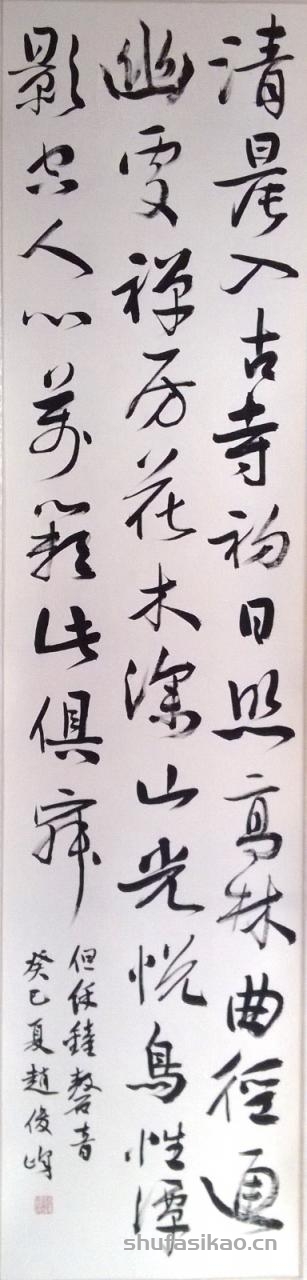 清晨入古寺初日照高林曲徑通
幽處禪房花木深山光悅鳥性潭
影空人心萬籟此俱寂
但餘鐘磬音
癸巳夏趙俊
shufasikao.cn